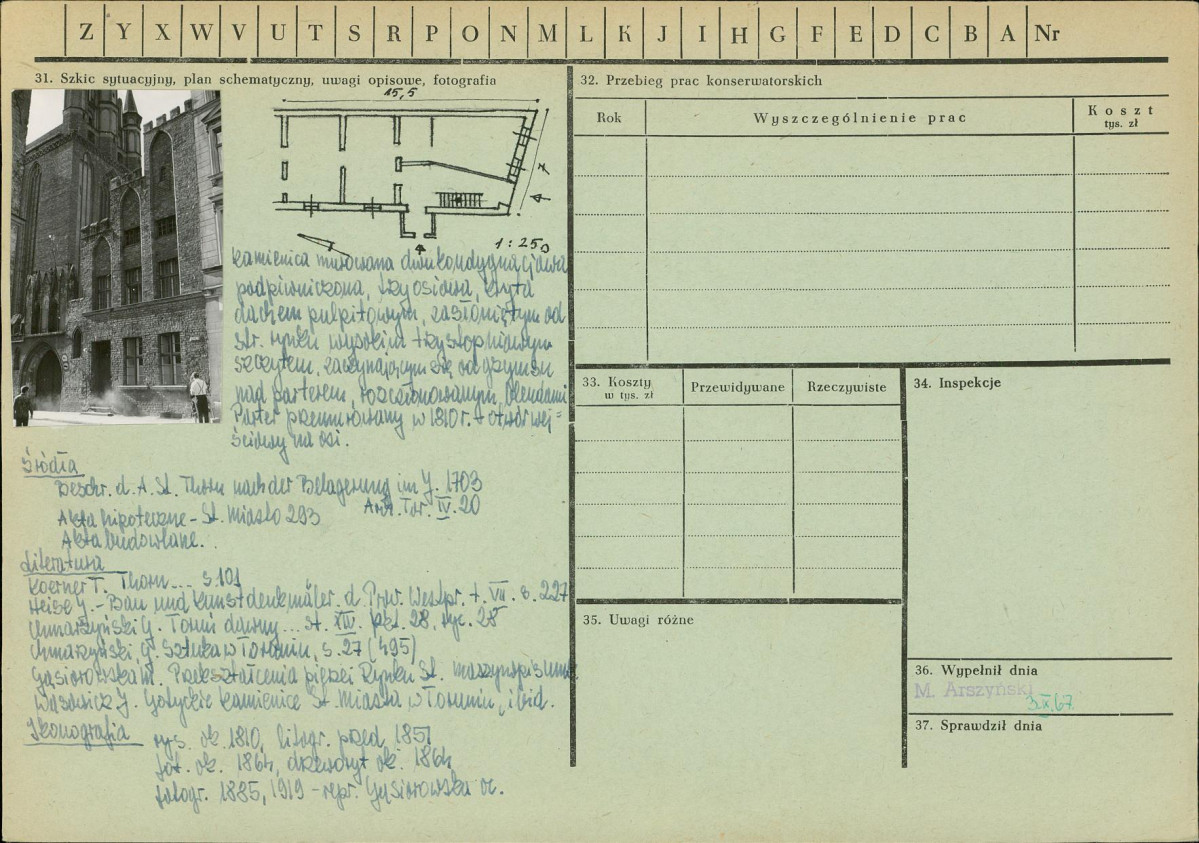 Z Y X W V U T S R P O N M L K J I H G F E D C B A Nr
31. Szkic sytuacyjny, plan schematyczny, uwagi opisowe, fotografia
15,5
7
1:250
kamienica murowana dwukondygnacjowa
podpiwniczona, trzyosiowa, kryta
dachem pulpitowym, zasłoniętym od
str. rynku wysokim trzystopniowym
szczytem, zaczynającym się od gzymsu
nad parterem, rozczłonkowanym blendami
Parter przemurowany w 1810 r. otwór wej=
ściowy na osi.
Źródła
Beschr. d. A. St. Thorn nach der Belagerung im J. 1703
Arch. Tor. IV. 20
Akta hipoteczne - St. Miasto 293
Akta budowlane.
Literatura
Koerner T. Thorn... s 101
Heise J. - Bau und Kunstdenkmäler. d. Prov. Westpr. t. VII. s. 227
Chmarzyński G. Toruń dawny... st. XIII. pkt. 28, ryc. 28
Chmarzyński G. Sztuka w Toruniu, s. 27 (495)
Gąsiorowska M. Przekształcenia pierzei Rynku St. maszynopis
Wasiewicz J. Gotyckie kamienice St. Miasta w Toruniu, ibid.
Ikonografia
rys. ok. 1810, litogr. przed 1851
fot. ok. 1864, drzeworyt ok. 1864
fotogr. 1885, 1919 - repr. Gąsiorowska
32. Przebieg prac konserwatorskich
Rok
Wyszczególnienie prac
Koszt
tys. zł
33. Koszty
w tys. zł
Przewidywane
Rzeczywiste
34. Inspekcje
35. Uwagi różne
36. Wypełnił dnia
M. Arszyński
3.X.67
37. Sprawdził dnia